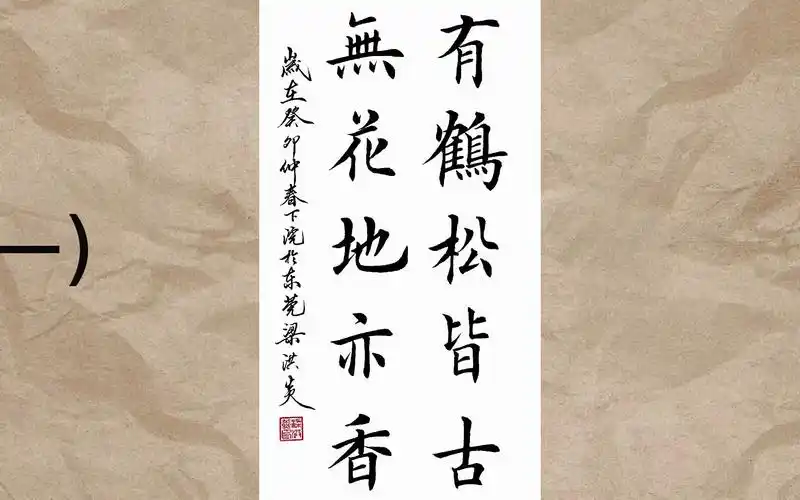 有鶴松皆古
無花地亦香
歲在癸卯仲春下浣於东莞梁洪炎
一）